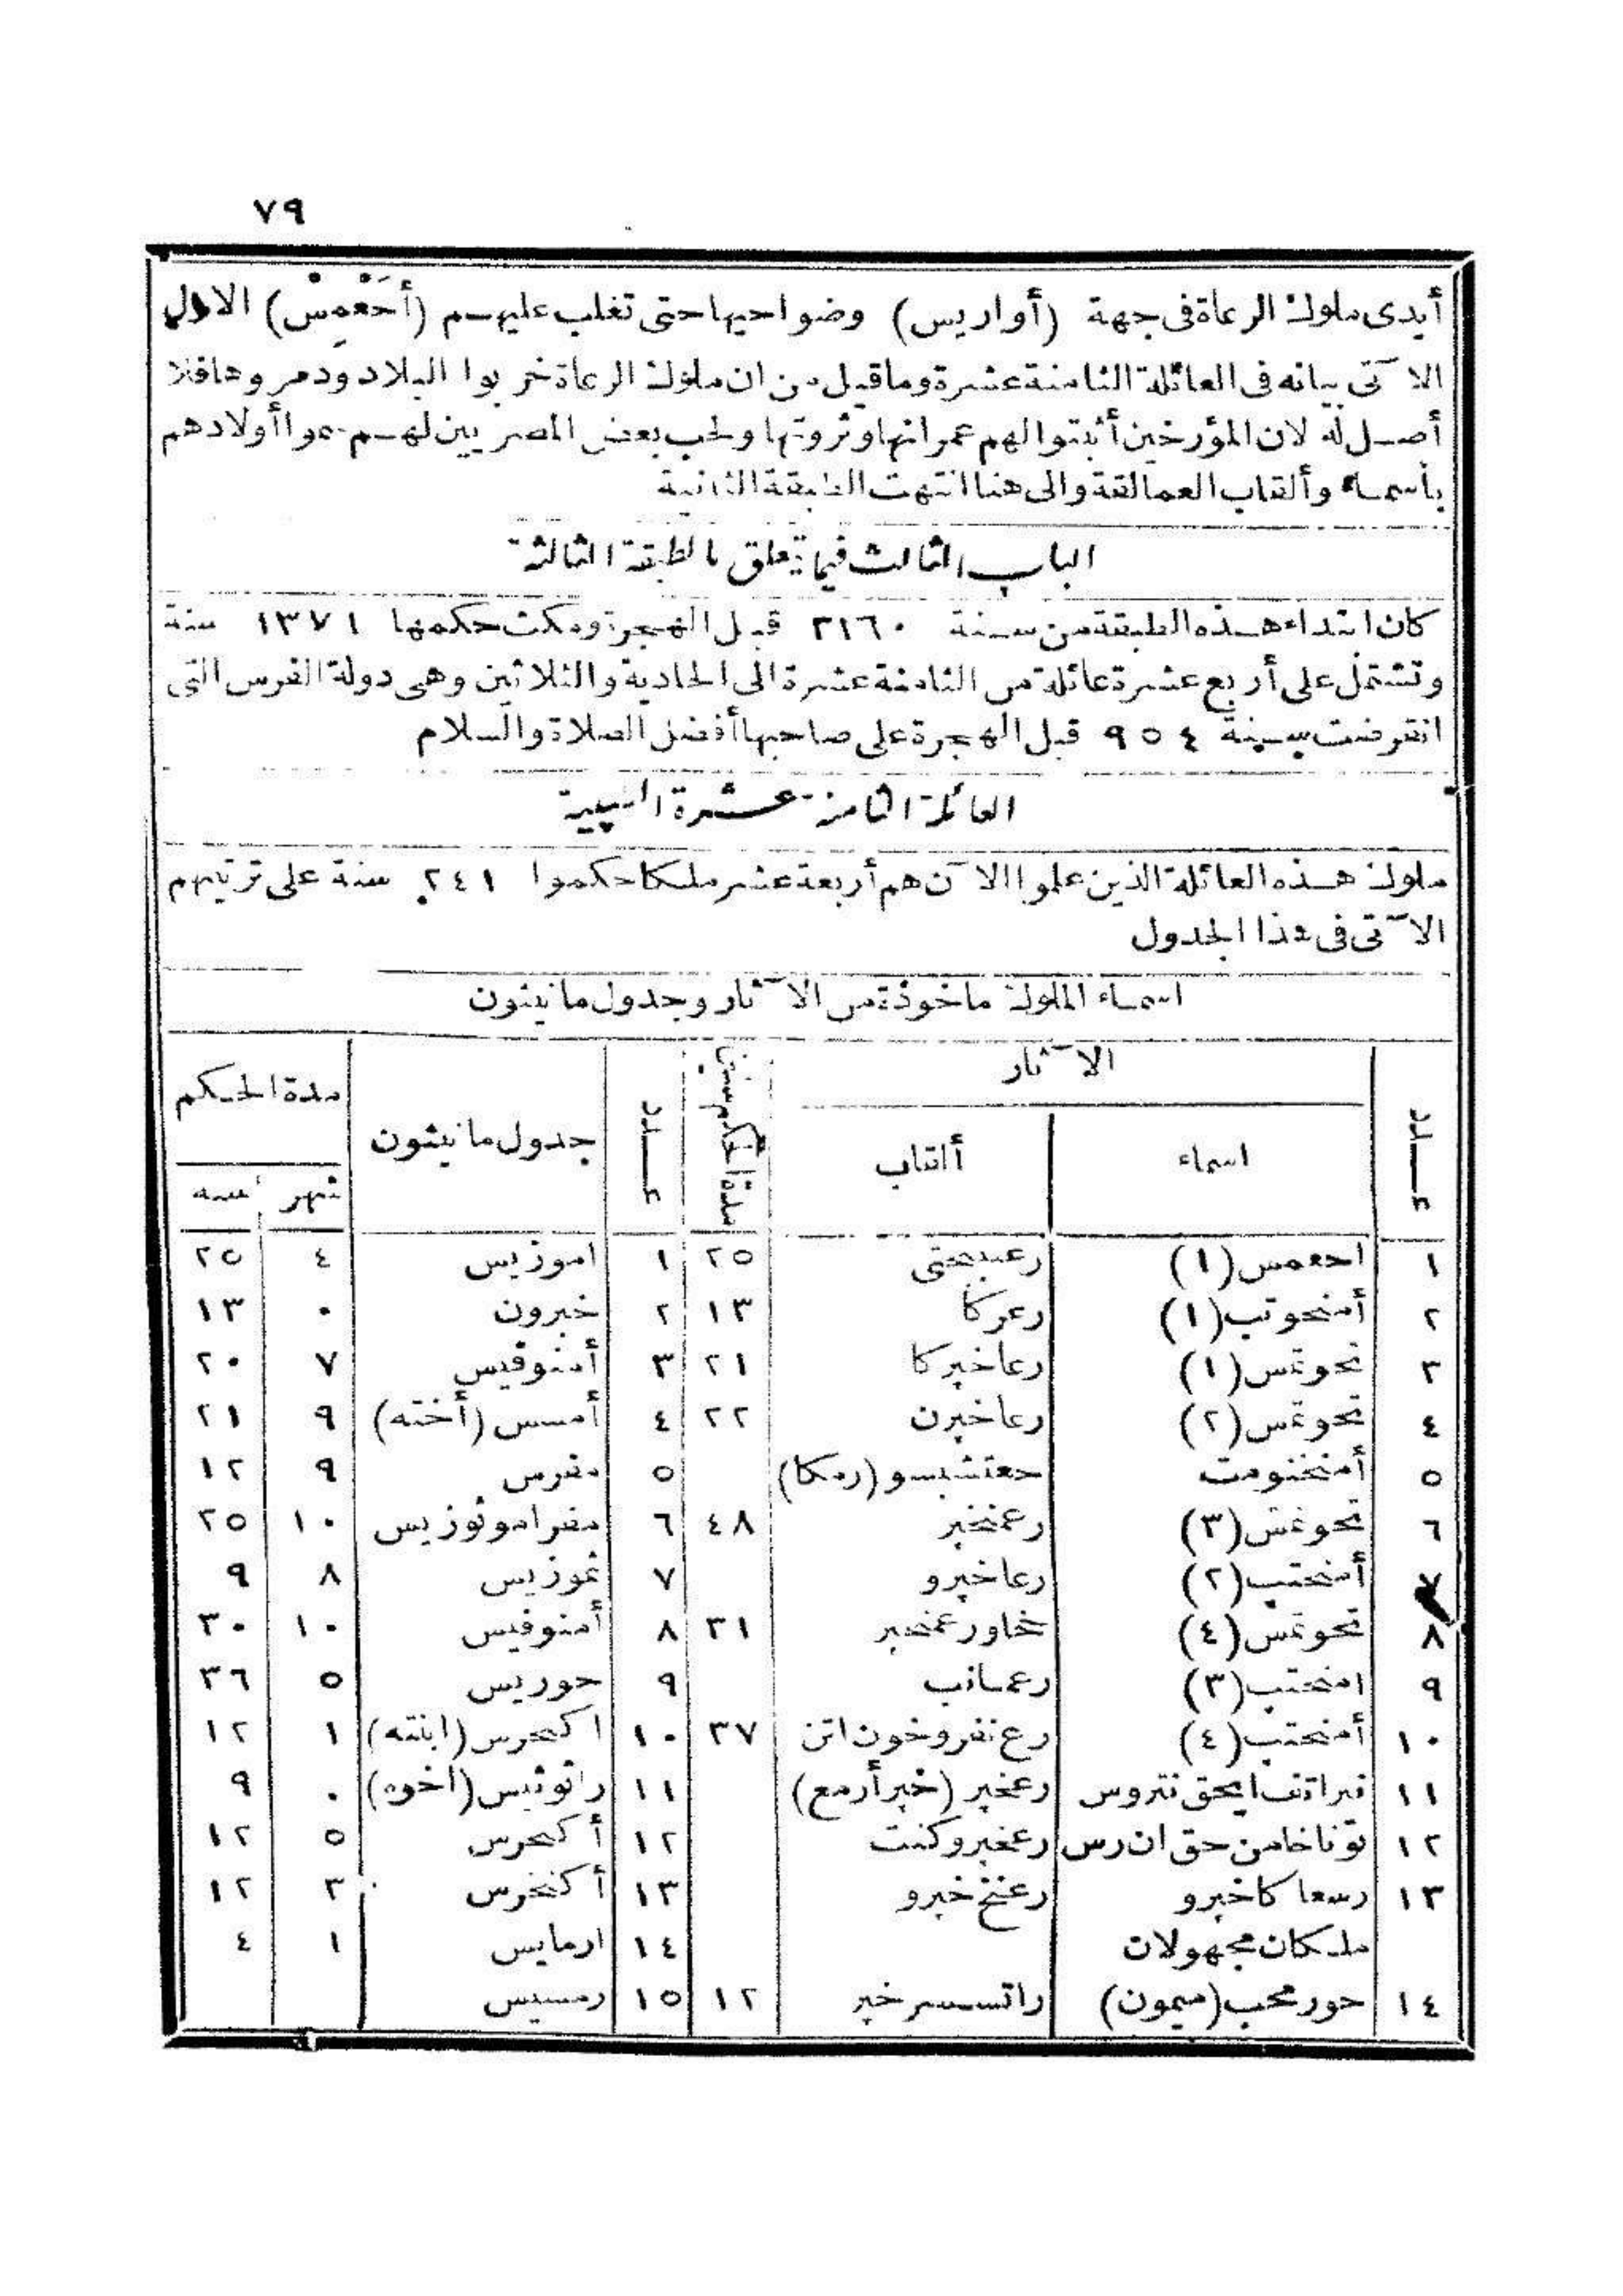 ٧٩
أيدى ملوك الرعاة فى جهة (أواريس) وضواحيها حتى تغلب عليهم (أَحَعْمِسْ) الاول
الآتى بيانه فى العائلة الثامنة عشرة وما قيل من ان ملوك الرعاة خربوا البلاد ودمروها فلا
أصل له لان المؤرخين أثبتوا لهم عمرانها وثروتها ولحب بعض المصريين لهم سموا أولادهم
بأسماء وألقاب العمالقة والى هنا انتهت الطبقة الثانية
الباب الثالث فيما يتعلق بالطبقة الثالثة
كان ابتداء هذه الطبقة من سنة ٢٣٢٥ قبل الهجرة ومكث حكمها ١٣٧١ سنة
وتشتمل على أربع عشرة عائلة من الثامنة عشرة الى الحادية والثلاثين وهى دولة الفرس التى
انقرضت بسنة ٩٥٤ قبل الهجرة على صاحبها أفضل الصلاة والسلام
العائلة الثامنة عشرة الطيبية
ملوك هذه العائلة الذين علموا الآن هم أربعة عشر ملكا حكموا ٢٤١ سنة على ترتيبهم
الآتى فى هذا الجدول
اسماء الملوك ماخوذة من الآثار وجدول مانيثون
عدد الآثار مدة الحكم سنين عدد جدول مانيثون مدة الحكم
اسماء ألقاب شهر سنه
١ احعمس (١) رعنبحتى ٢٥ ١ اموزيس ٤ ٢٥
٢ أمنحوتب (١) رعركا ١٣ ٢ خبرون ٠ ١٣
٣ تحوتمس (١) رعاخبركا ٢١ ٣ أمنوفيس ٧ ٢٠
٤ تحوتمس (٢) رعاخبرن ٢٢ ٤ أمسس (أخته) ٩ ٢١
٥ أمنخنومت حعتشبسو (رمكا) ٥ مفرس ٩ ١٢
٦ تحوتمس (٣) رعمنخبر ٤٨ ٦ مفراموثوزيس ١٠ ٢٥
٧ أمنحتب (٢) رعاخبرو ٧ تموزيس ٨ ٩
٨ تحوتمس (٤) خاورعمنخبر ٣١ ٨ أمنوفيس ١٠ ٣٠
٩ امنحتب (٣) رعمانب ٩ حوريس ٥ ٣٦
١٠ أمنحتب (٤) رع نفروخون اتن ٣٧ ١٠ اكنحرس (ابنته) ١ ١٢
١١ نبراتف ايحق نتروس رعخبر (خبرأرمع) ١١ راثوتيس (اخوه) ٠ ٩
١٢ توتناخامن حق ان رس رعخبروكنت ١٢ أكنحرس ٥ ١٢
١٣ رسعاكاخبرو رعنخ خبرو ١٣ أكنخرس ٣ ١٢
ملكان مجهولات ١٤ ارمايس ١ ٤
١٤ حورمحب (ميمون) راتسسرخبر ١٢ ١٥ رمسيس